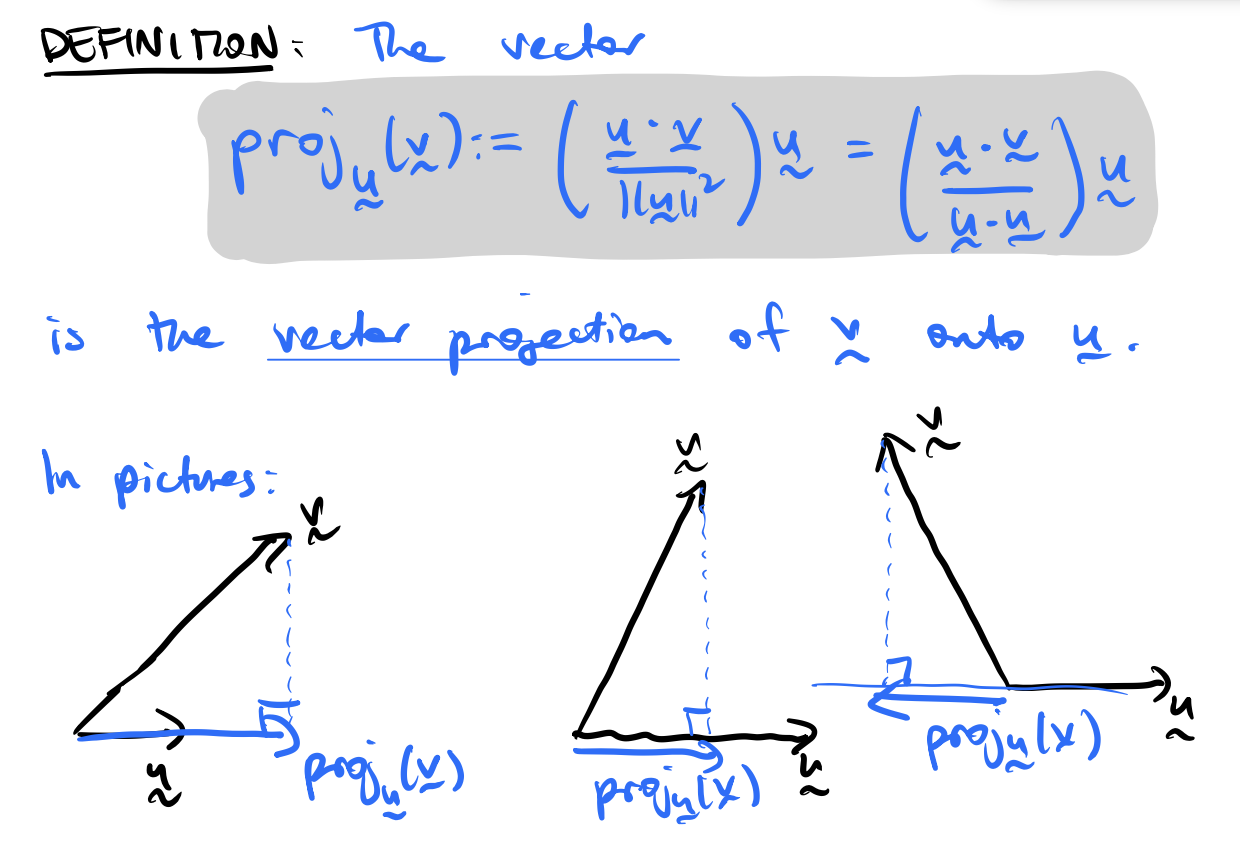 DEFINITION: The vector
proj_ṵ(v̰) := (u̲ · v̲ / ||ṵ||²) ṵ = (ṵ · v̰ / ṵ · u̲) ṵ
is the vector projection of v̰ onto u̲.
In pictures:
v̰
ṵ
proj_ṵ(v̲)
v̰
ṵ
proj_u̲(v)
v̰
ṵ
proj_ṵ(v)